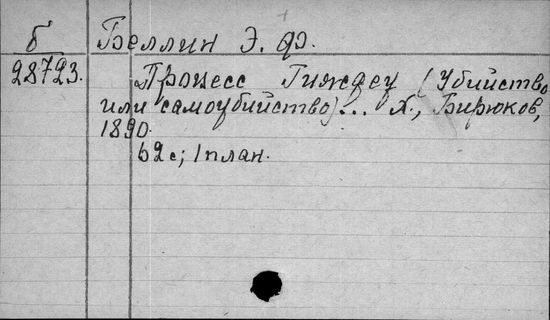 б Беллин Э. Ф.
28723.
Процесс Гиждеу (Убийство
или самоубийство)... Х., Бирюков,
1890.
62 с; 1 план.